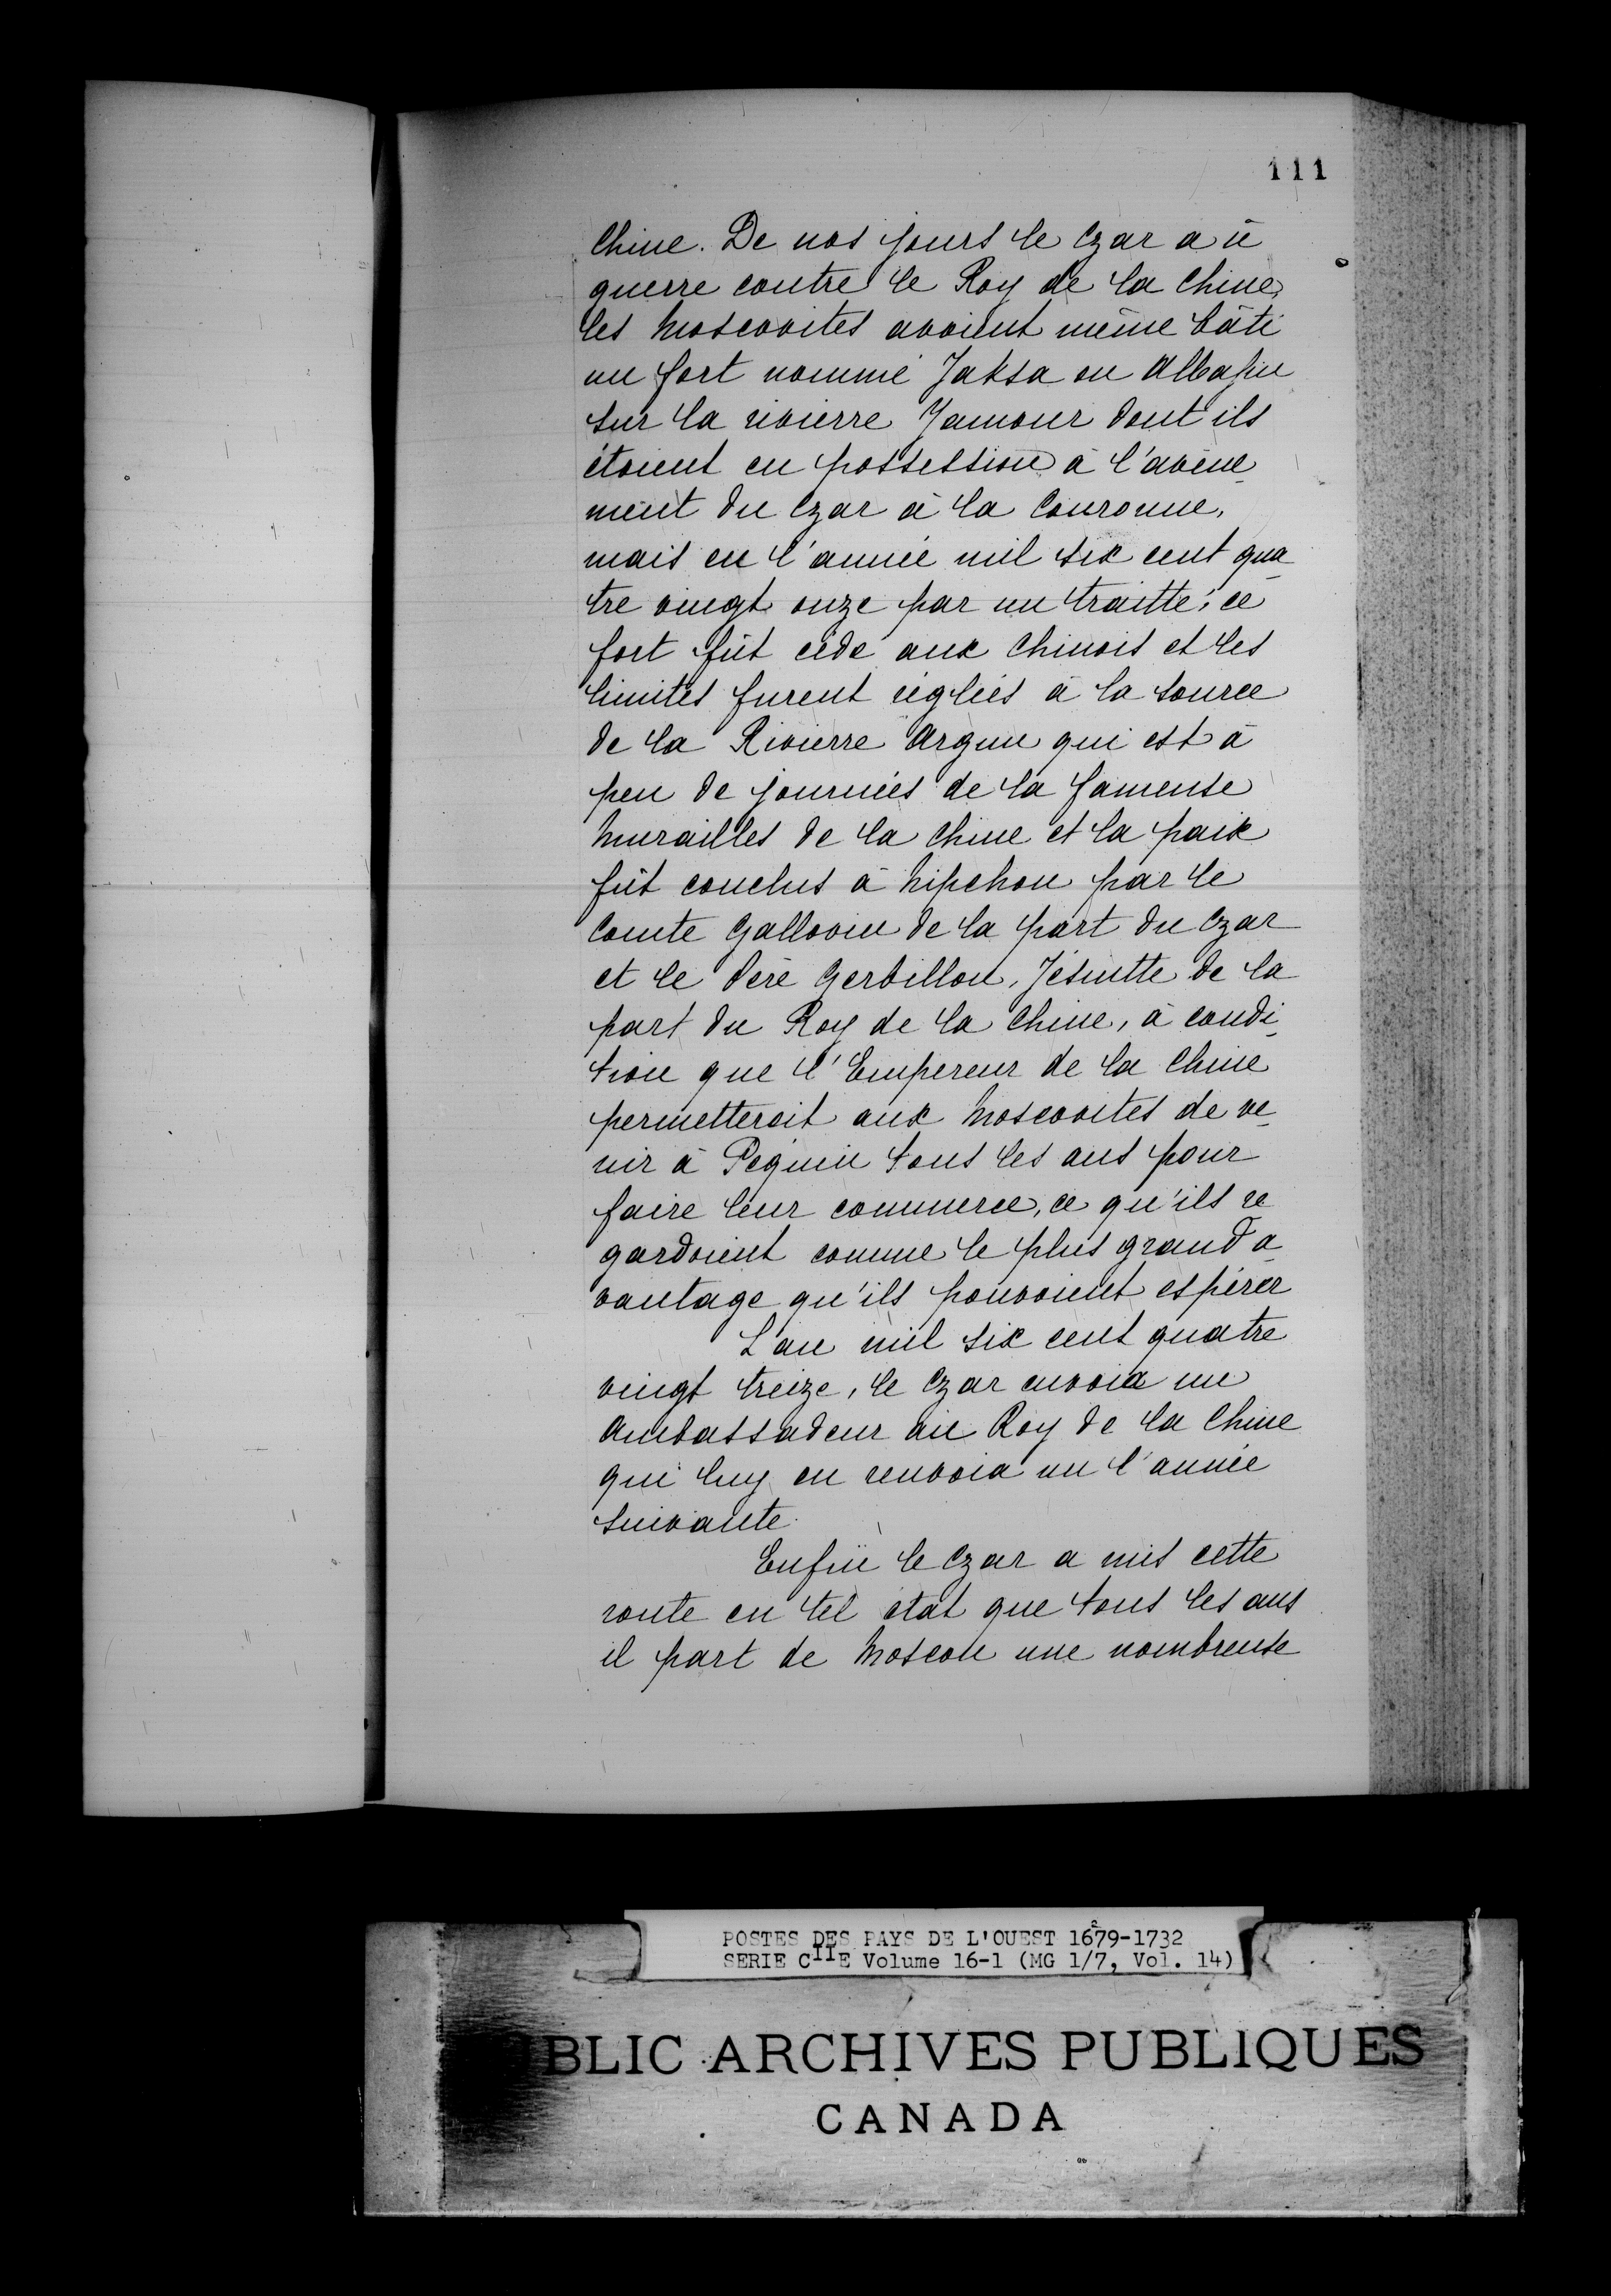 111
Chine. De nos jours le Czar a û
guerre contre le Roy de la Chine,
les Moscovites avoient même bâti
un fort nommé Jaksa ou Albazin
sur la rivierre Yamour dont ils
étoient en possession à l'avene-
ment du Czar à la Couronne,
mais en l'année mil six cent qua-
tre vingt onze par un traitté, ce
fort fût cédé aux Chinois et les
limites furent réglées à la source
de la Rivierre Argun qui est à
peu de journées de la fameuse
Murailles de la Chine et la paix
fût conclus à Nipchou par le
Comte Gallovin de la part du Czar
et le Père Gerbillon, Jésuitte de la
part du Roy de la Chine, à condi-
tion que l'Empereur de la Chine
permetteroit aux Moscovites de ve-
nir à Pequin tous les ans pour
faire leur commerce, ce qu'ils re
gardoient comme le plus grand a-
vantage qu'ils pouvoient espérer
L'an mil six cent quatre
vingt treize, le Czar envoia un
Ambassadeur au Roy de la Chine
qui luy en renvoia un l'année
suivante.
Enfin le Czar a mis cette
route en tel état que tous les ans
il part de Moscou une nombreuse
POSTES DES PAYS DE L'OUEST 1679-1732
SERIE CIIE Volume 16-1 (MG 1/7, Vol. 14)
BLIC ARCHIVES PUBLIQUES
CANADA